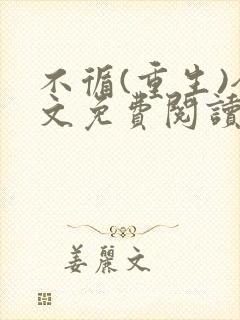 不循(重生)
文免費閱讀
姜麗文